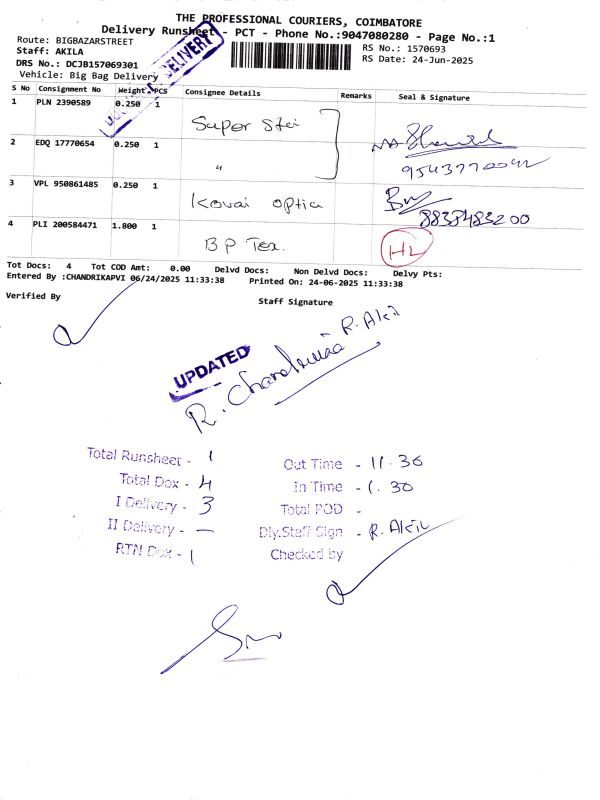 THE PROFESSIONAL COURIERS, COIMBATORE
Delivery Runsheet - PCT - Phone No.:9047080280 - Page No.:1
Route: BIGBAZARSTREET
RS No.: 1570693
Staff: AKILA
RS Date: 24-Jun-2025
DRS No.: DCJB157069301
Vehicle: Big Bag Delivery
DELIVERY
S No Consignment No Weight PCS Consignee Details Remarks Seal & Signature
1 PLN 2390589 0.250 1 Super Star
2 EDQ 17770654 0.250 1 "
9543770092
3 VPL 950861485 0.250 1 Kovai optica
8838483200
4 PLI 200584471 1.800 1 B P Tex. HL
Tot Docs: 4 Tot COD Amt: 0.00 Delvd Docs: Non Delvd Docs: Delvy Pts:
Entered By :CHANDRIKAPVI 06/24/2025 11:33:38 Printed On: 24-06-2025 11:33:38
Verified By Staff Signature
R. Akil
UPDATED
Total Runsheet - 1
Out Time - 11.30
Total Dox - 4
In Time - 1.30
I Delivery - 3
Total POD -
II Delivery - —
Dly.Staff Sign - R. Akil
RTN Dox - 1
Checked by